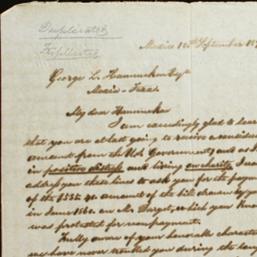 Duplicated
Triplicated
Mexico 12th September 18
George L. Hammeken Esqr
My dear Hammeken
I am exceedingly glad to learn
that you are at last going to receive a considerable
amount from the U.S. Government, and as I
in positive distress and living on charity, I must
address you these lines to ask you for the payment
of the amount of the bill drawn by you
in June 1860. on Mr. which you know
was protested for nonpayment.
Fully aware of your honorable character
we have never troubled you during the long